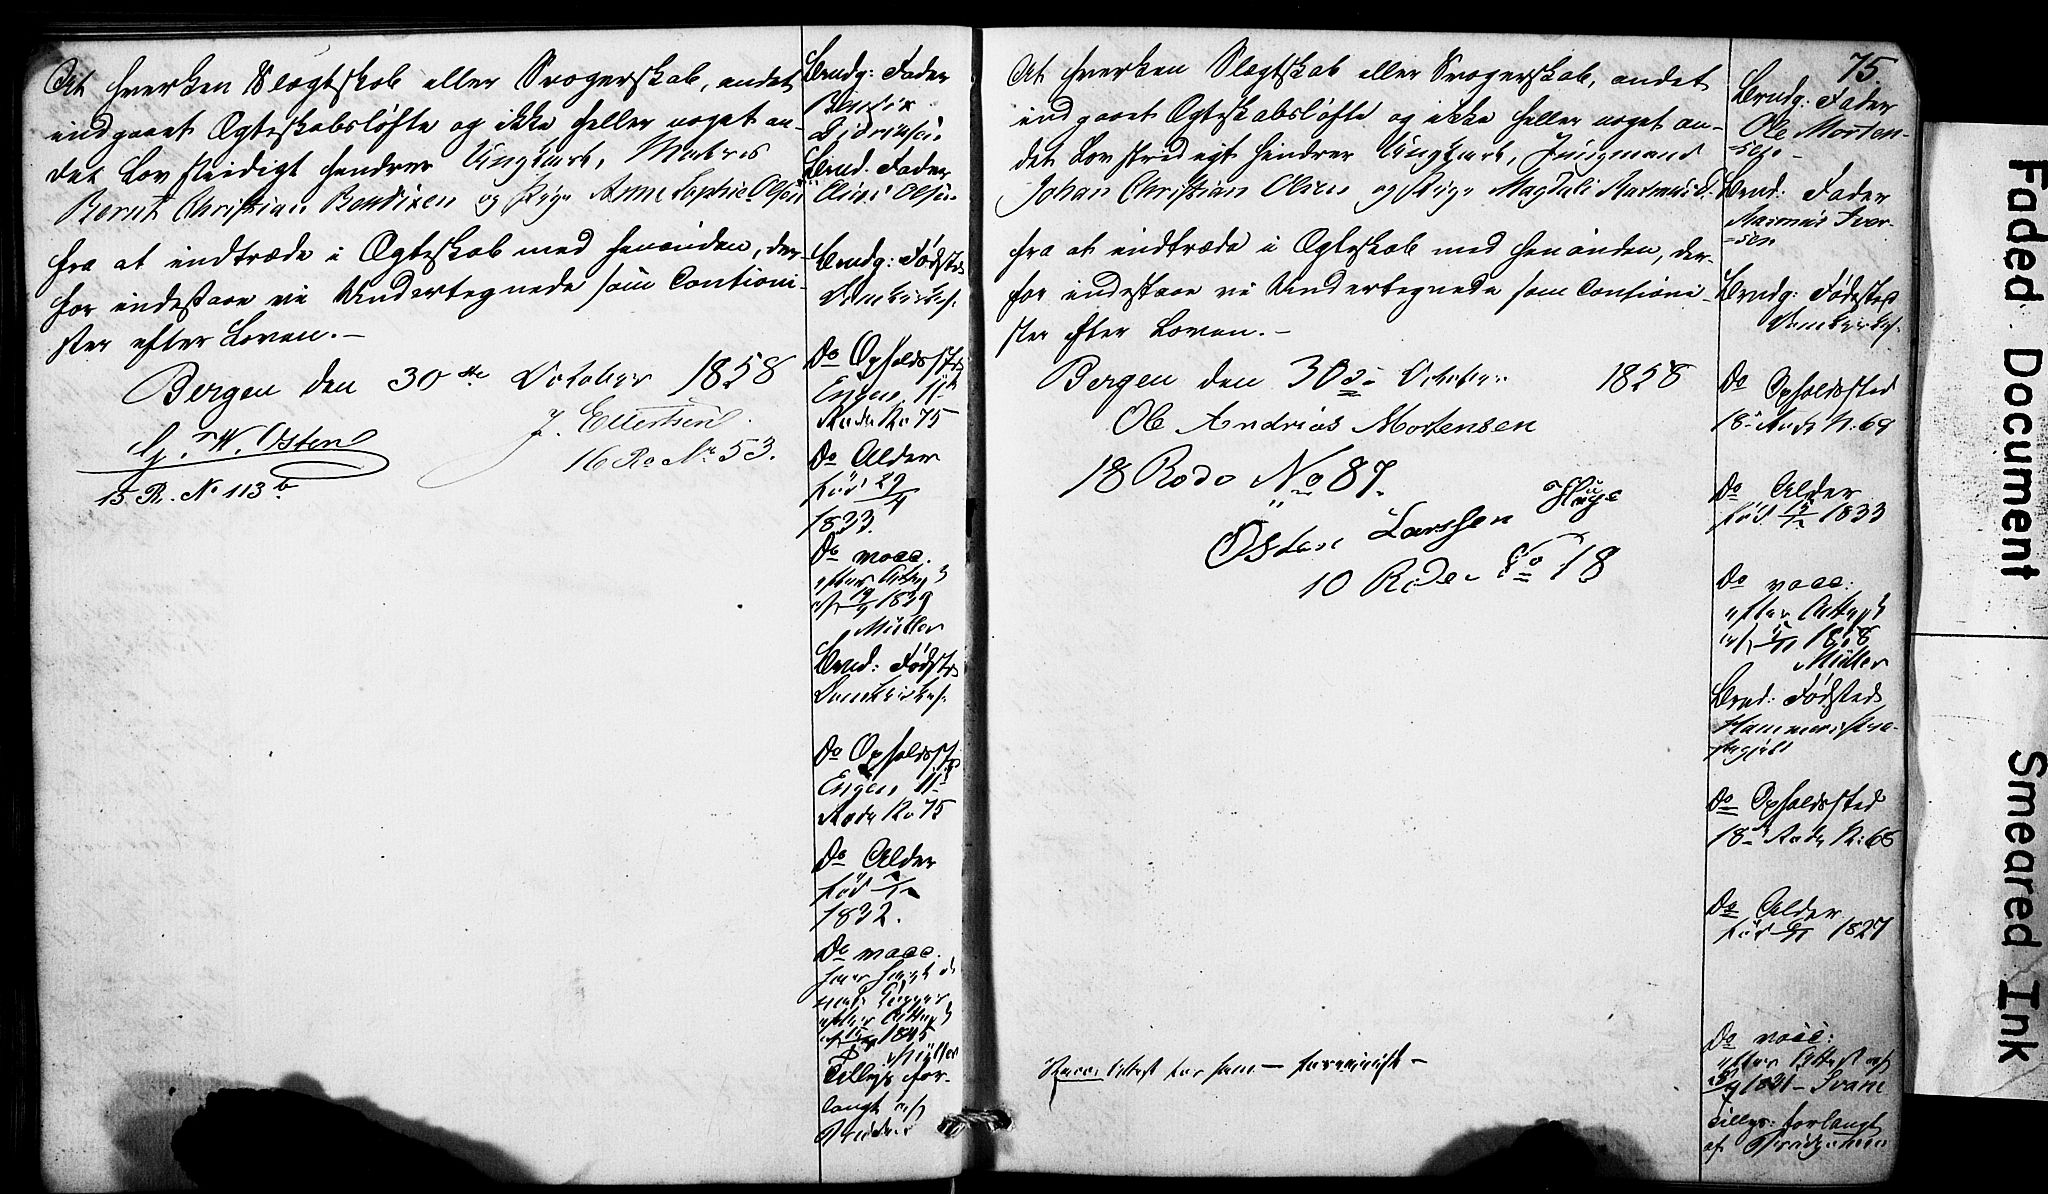 At hverken Slægtskab eller Svogerskab, andet
indgaaet Ægteskabsløfte og ikke heller noget an-
det Lovstridigt hindrer Ungkarl, Matros
Bernt Christian Bendixen og Pige Anne Sophie Olsen
fra at indtræde i Ægteskab med hinanden, der-
for indestaae vi Undertegnede som Cautioni-
ster efter Loven.-
Bergen den 30te October 1858
G. W. Osten
15 R. No 113b
J. Ellertsen
16 Ro No 53.
Brudg: Fader
Brud. Fader
Olsen
Brudg: Fødsted
Domkirkes.
Do Opholdsst
Engen 11
Rode No 75
Do Alder
fød 29/4
1833.
Do vacc.
efter Attest
af 19/9 1839
Müller
Brud: Fødst
Domkirkes.
Do Opholdsst
Engen 11
Rode No 75
Do Alder
fød
1832.
Do vacc.
efter Attest
af 1845
Müller
Tillyst for-
langt af
75.
At hverken Slægtskab eller Svogerskab, andet
indgaaet Ægteskabsløfte og ikke heller noget an-
det Lovstridigt hindrer Ungkarl, Jungmand
Johan Christian Olsen og Pige Magdeli Rasmusd.
fra at indtræde i Ægteskab med hinanden, der-
for indestaae vi Undertegnede som Cautioni-
ster efter Loven.-
Bergen den 30te October 1858
Ole Andreas Mortensen
18 Rode No 87.
Østen Larssen Houge
10 Rode No 18
Brudg: Fader
Ole Morten-
sen
Brud: Fader
Rasmus Iver-
sen
Brudg: Fødested
Domkirkes.
Do Opholdssted
18 Rode N: 69
Do Alder
fød 15/12 1833
Do vacc:
efter Attest
af 1858
Müller
Brud: Fødsted
Hammer
Do Opholdssted
18 Rode N: 68
Do Alder
fød 6/11 1827
Do vacc:
efter Attest af
1831 - Svane
Tillys: forlangt
af Brudgommen
Faded Document
Smeared Ink